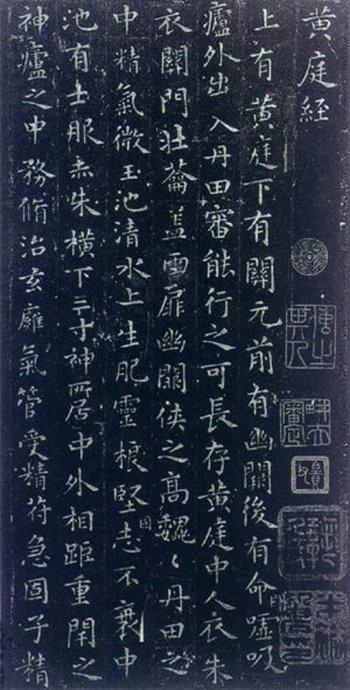 黃庭經
上有黃庭下有關元前有幽關後有命噓吸
廬外出入丹田審能行之可長存黃庭中人衣朱
衣關門壯蘥蓋兩扉幽關俠之高魏〻丹田之
中精氣微玉池清水上生肥靈根堅志不衰中
固
池有士服赤朱橫下三寸神所居中外相距重閇之
神廬之中務脩治玄廱氣管受精符急固子精